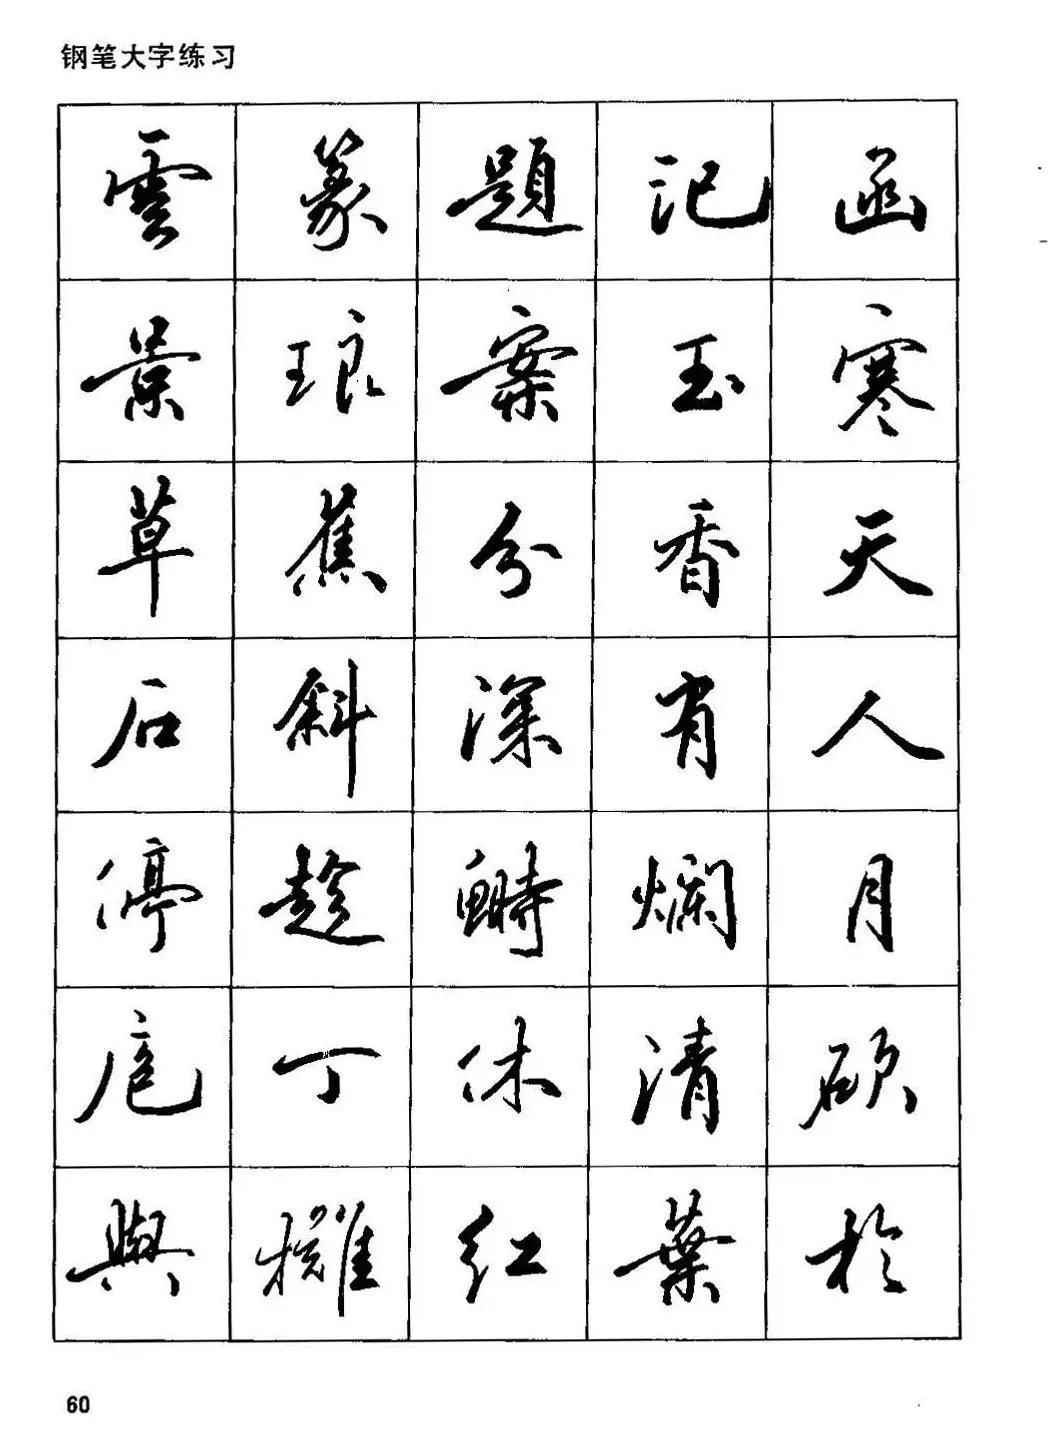 钢笔大字练习
雲篆題記函
景琅案玉寒
草蕉分香天
石斜深有人
停趁鰣爛月
扈丁休清碩
與櫂紅葉於
60